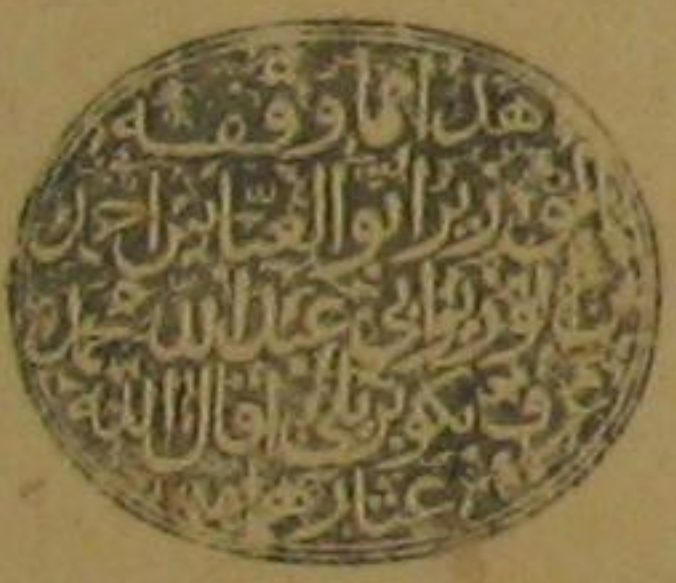 هذا ما وقفه
الوزير ابو العباس احمد
بن الوزير ابي عبد الله محمد
عرف بكوبريلى اقال الله
عثارهما